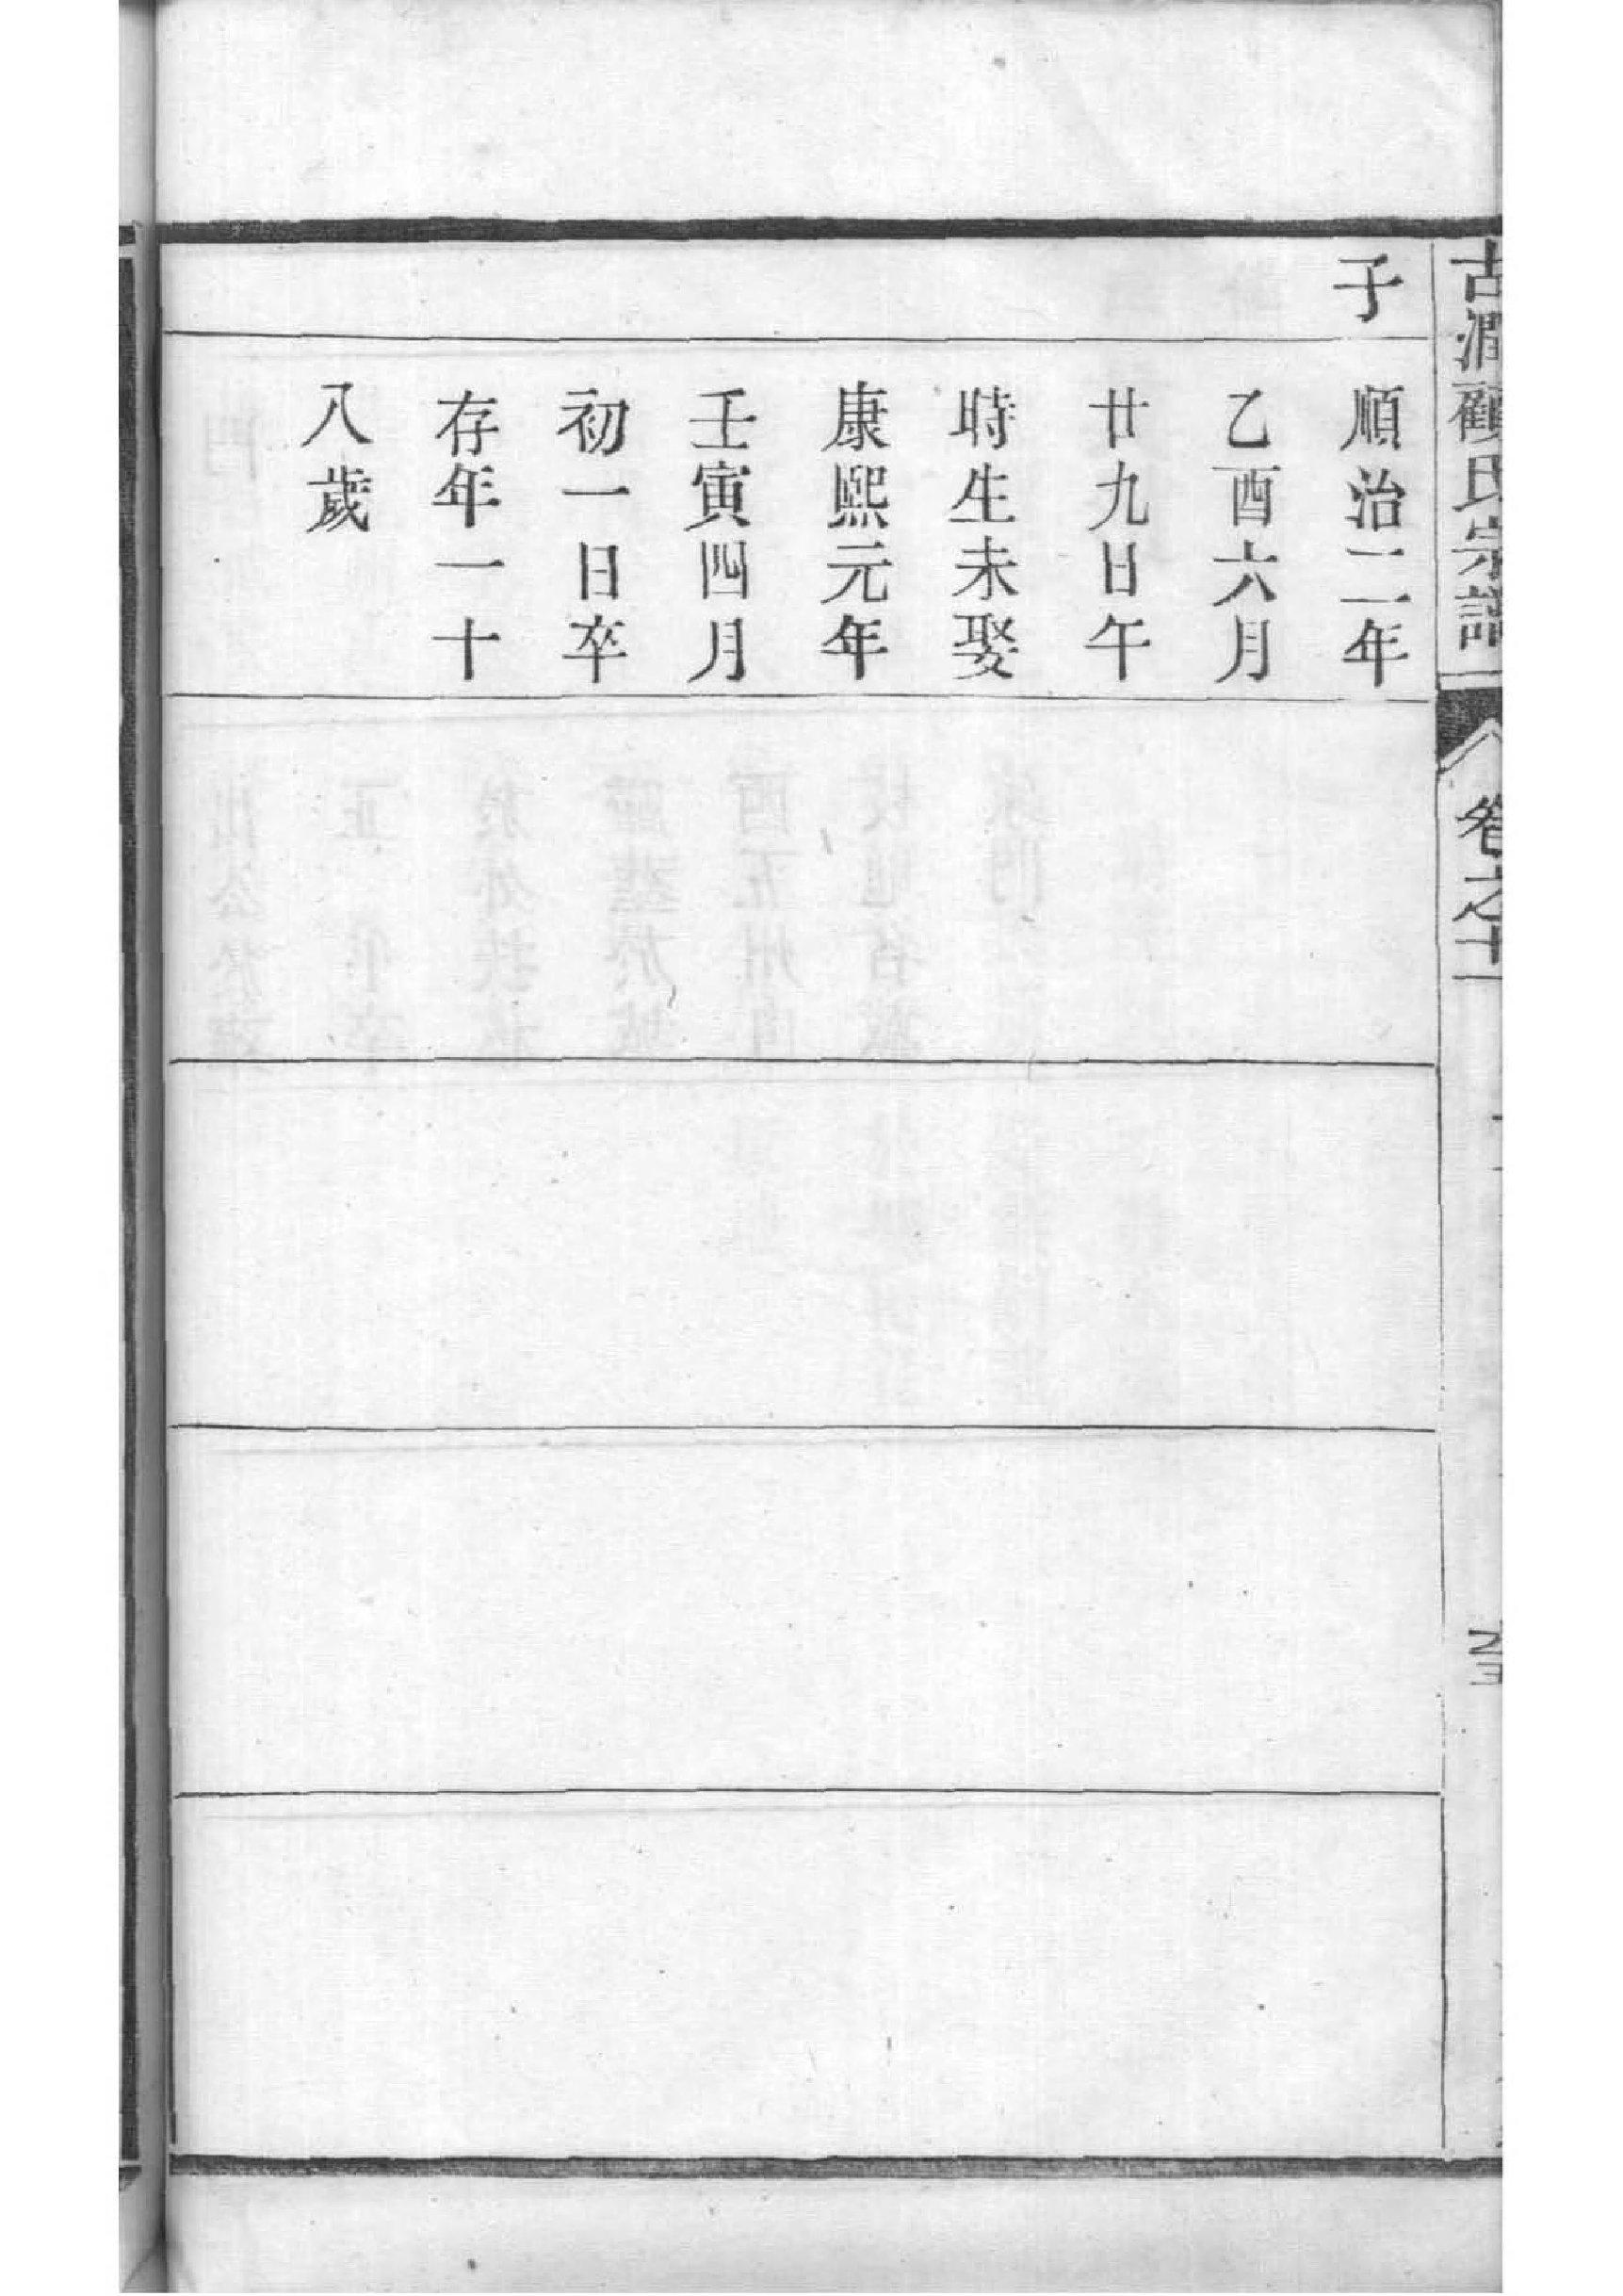 古潤顧氏宗譜
卷之十
子
順治二年
乙酉六月
廿九日午
時生未娶
康熙元年
壬寅四月
初一日卒
存年一十
八歲